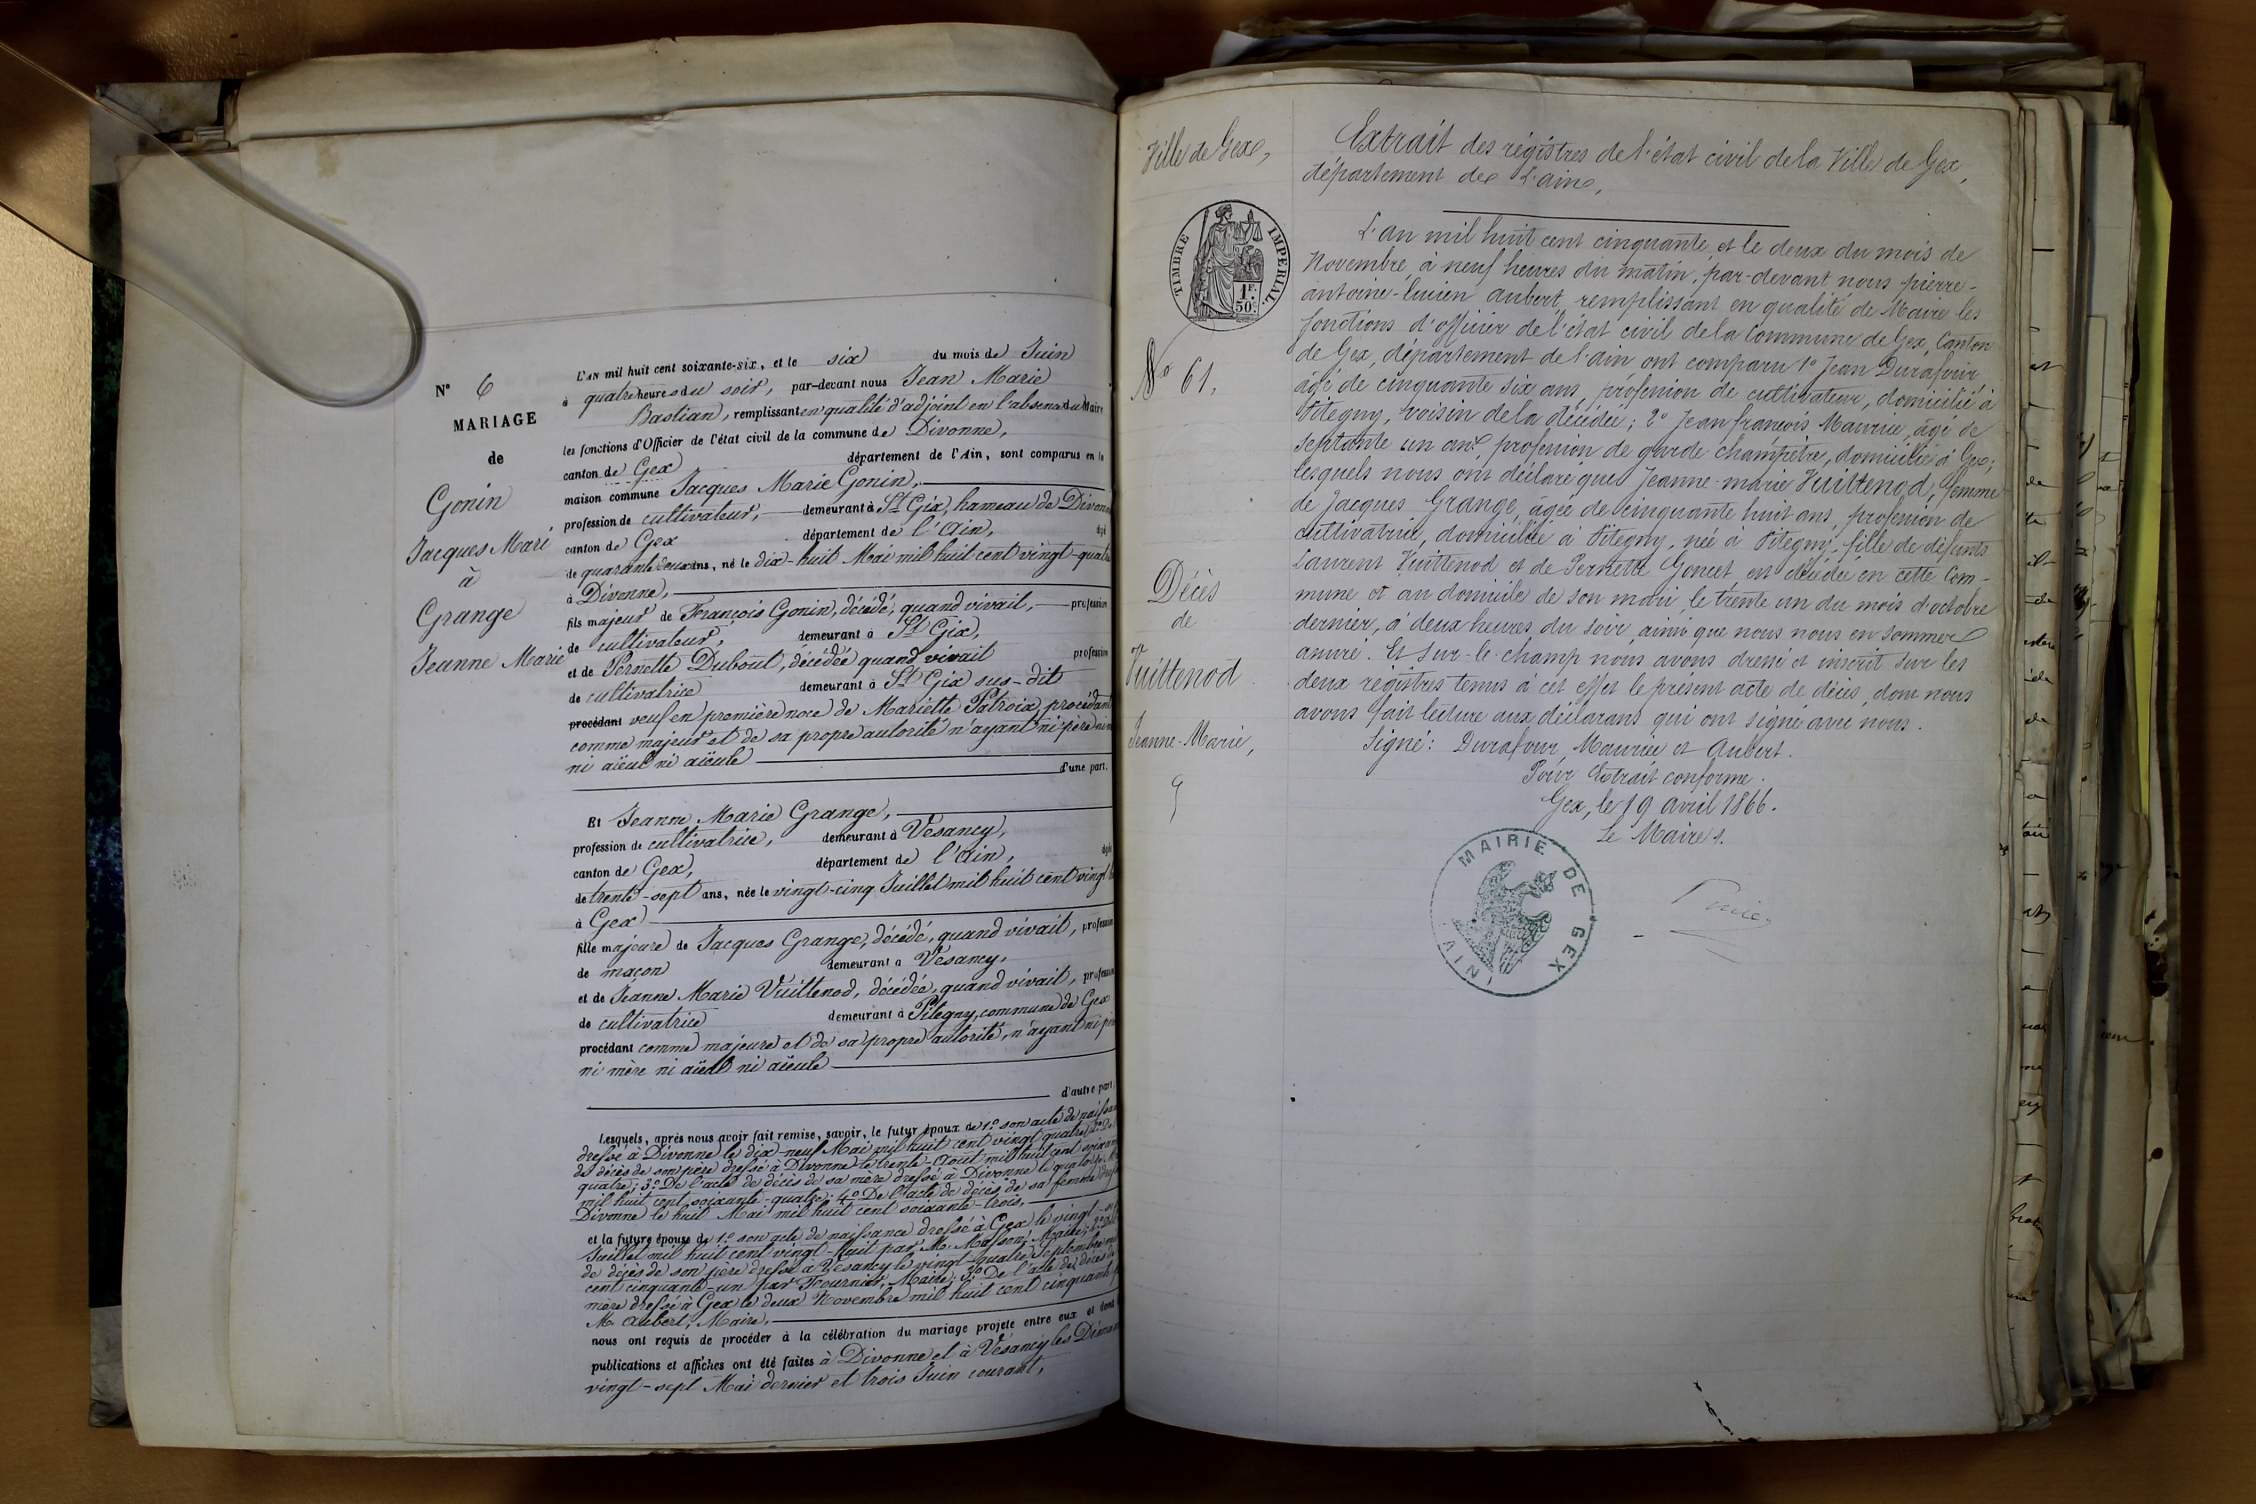 N° 6
MARIAGE
de
Gonin
Jacques Marie
à
Grange
Jeanne Marie
L'AN mil huit cent soixante-six, et le six du mois de Juin
à quatre heures du soir, par-devant nous Jean Marie
Bastian, remplissant en qualité d'adjoint en l'absence du Maire
les fonctions d'Officier de l'état civil de la commune de Divonne,
canton de Gex département de l'Ain, sont comparus en la
maison commune Jacques Marie Gonin,
profession de cultivateur, demeurant à St Gix, hameau de Divonne
canton de Gex département de l'Ain, âgé
de quarante deux ans, né le dix-huit Mai mil huit cent vingt-quatre
à Divonne,
fils majeur de François Gonin, décédé, quand vivait, profession
de cultivateur, demeurant à St Gix,
et de Pernette Dubout, décédée quand vivait profession
de cultivatrice demeurant à St Gix sus-dit
procédant veuf en première noce de Mariette Patroix, procédant
comme majeur et de sa propre autorité n'ayant ni père ni
ni aïeul ni aïeule
d'une part.
Et Jeanne Marie Grange,
profession de cultivatrice, demeurant à Vesancy,
canton de Gex, département de l'Ain, âgée
de trente-sept ans, née le vingt-cinq Juillet mil huit cent vingt
à Gex
fille majeure de Jacques Grange, décédé, quand vivait, profession
de maçon demeurant à Vesancy,
et de Jeanne Marie Vuittenod, décédée, quand vivait, profession
de cultivatrice demeurant à Pitegny, commune de Gex
procédant comme majeure et de sa propre autorité, n'ayant ni père
ni mère ni aïeul ni aïeule
d'autre part.
Lesquels, après nous avoir fait remise, savoir, le futur époux de 1° son acte de naissance
dressé à Divonne le dix-neuf Mai mil huit cent vingt quatre 2° De
de décès de son père dressé à Divonne le trente Août mil huit cent soixante
quatre; 3° De l'acte de décès de sa mère dressé à Divonne le quatorze
mil huit cent soixante-quatre; 4° De l'acte de décès de sa femme dressé
Divonne le huit Mai mil huit cent soixante-trois,
et la future épouse de 1° son acte de naissance dressé à Gex le vingt
Juillet mil huit cent vingt-huit par Mr Masson, Maire; 2° De
de décès de son père dressé à Vesancy le vingt-quatre Septembre
cent cinquante-un par Fournier, Maire; 3° De l'acte de décès de
mère dressé à Gex le deux Novembre mil huit cent cinquante
Mr Aubert, Maire,
nous ont requis de procéder à la célébration du mariage projeté entre eux et dont
publications et affiches ont été faites à Divonne et à Vesancy les Dimanches
vingt-sept Mai dernier et trois Juin courant,
Ville de Gex,
TIMBRE IMPERIAL.
1F. 50c.
N° 61.
Décès
de
Vuittenod
Jeanne-Marie,
Extrait des régistres de l'état civil de la Ville de Gex,
département de L'ain,
L'an mil huit cent cinquante, et le deux du mois de
Novembre, à neuf heures du matin, par-devant nous pierre-
antoine-lucien aubert, remplissant en qualité de Maire les
fonctions d'officier de l'état civil de la Commune de Gex, Canton
de Gex, département de l'ain ont comparu 1° Jean Durafour
âgé de cinquante six ans, profession de cultivateur, domicilié à
Pitegny, voisin de la décédée; 2° Jean françois Maurice, âgé de
septante un ans, profession de garde-champêtre, domicilié à Gex;
lesquels nous ont déclaré que Jeanne-marie Vuittenod, femme
de Jacques Grange, âgée de cinquante huit ans, profession de
cultivatrice, domiciliée à Pitegny, née à Pitegny, fille de défunts
Laurent Vuittenod et de Pernette Goncet, est décédée en cette Com-
mune et au domicile de son mari, le trente un du mois d'octobre
dernier, à deux heures du soir, ainsi que nous nous en sommes
assuré. Et sur-le-champ nous avons dressé et inscrit sur les
deux régistres tenus à cet effet le présent acte de décès, dont nous
avons fait lecture aux déclarans qui ont signé avec nous.
Signé: Durafour, Maurice et Aubert.
Pour Extrait conforme.
Gex, le 19 avril 1866.
Le Maire,
MAIRIE DE GEX
(AIN)